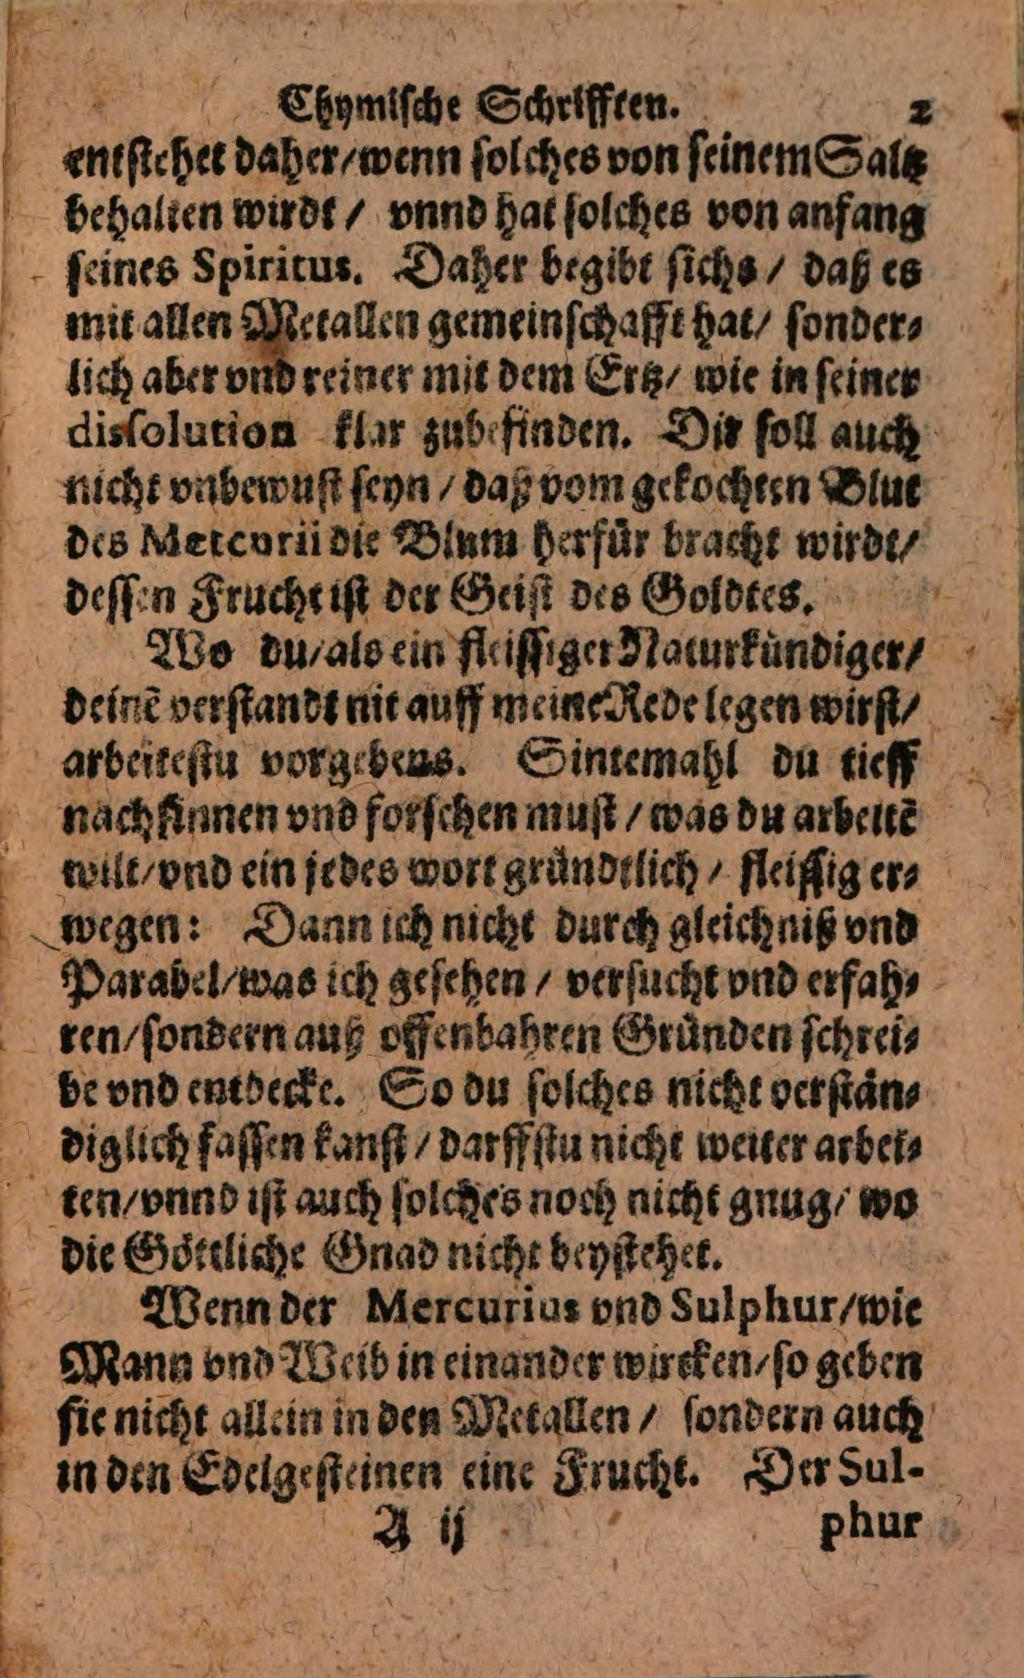 Chymische Schrifften. 2
entstehet daher/wenn solches von seinem Saltz
behalten wirdt / vnnd hat solches von anfang
seines Spiritus. Daher begibt sichs / daß es
mit allen Metallen gemeinschafft hat/ sonder⸗
lich aber vnd reiner mit dem Ertz/ wie in seiner
dissolution klar zubefinden. Dir soll auch
nicht vnbewust seyn / daß vom gekochten Blut
des Mercurii die Blum herfür bracht wirdt/
dessen Frucht ist der Geist des Goldtes.
Wo du/als ein fleissiger Naturkündiger/
deinē verstandt nit auff meine Rede legen wirst/
arbeitestu vorgebens. Sintemahl du tieff
nachsinnen vnd forschen must / was du arbeitē
wilt/vnd ein jedes wort gründtlich / fleissig er⸗
wegen: Dann ich nicht durch gleichniß vnd
Parabel/was ich gesehen / versucht vnd erfah⸗
ren/sondern auß offenbahren Gründen schrei⸗
be vnd entdecke. So du solches nicht verstän⸗
diglich fassen kanst / darffstu nicht weiter arbei⸗
ten/vnnd ist auch solches noch nicht gnug/ wo
die Göttliche Gnad nicht beystehet.
Wenn der Mercurius vnd Sulphur/wie
Mann vnd Weib in einander wircken/so geben
sie nicht allein in den Metallen / sondern auch
in den Edelgesteinen eine Frucht. Der Sul-
A ij phur